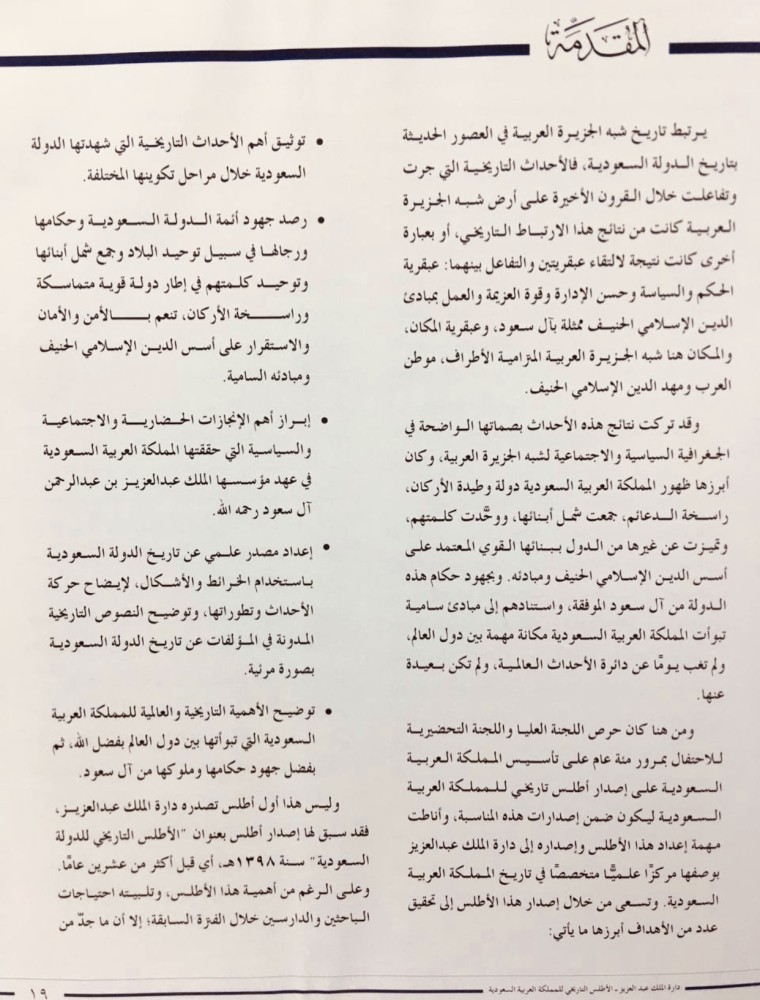 المقدمة
يرتبط تاريخ شبه الجزيرة العربية في العصور الحديثة
بتاريخ الدولة السعودية، فالأحداث التاريخية التي جرت
وتفاعلت خلال القرون الأخيرة على أرض شبه الجزيرة
العربية كانت من نتائج هذا الارتباط التاريخي، أو بعبارة
أخرى كانت نتيجة لالتقاء عبقريتين والتفاعل بينهما: عبقرية
الحكم والسياسة وحسن الإدارة وقوة العزيمة والعمل بمبادئ
الدين الإسلامي الحنيف ممثلة بآل سعود، وعبقرية المكان،
والمكان هنا شبه الجزيرة العربية المترامية الأطراف، موطن
العرب ومهد الدين الإسلامي الحنيف.
وقد تركت نتائج هذه الأحداث بصماتها الواضحة في
الجغرافية السياسية والاجتماعية لشبه الجزيرة العربية، وكان
أبرزها ظهور المملكة العربية السعودية دولة وطيدة الأركان،
راسخة الدعائم، جمعت شمل أبنائها، ووحَّدت كلمتهم،
وتميزت عن غيرها من الدول ببنائها القوي المعتمد على
أسس الدين الإسلامي الحنيف ومبادئه. وبجهود حكام هذه
الدولة من آل سعود الموفقة، واستنادهم إلى مبادئ سامية
تبوأت المملكة العربية السعودية مكانة مهمة بين دول العالم،
ولم تغب يومًا عن دائرة الأحداث العالمية، ولم تكن بعيدة
عنها.
ومن هنا كان حرص اللجنة العليا واللجنة التحضيرية
للاحتفال بمرور مئة عام على تأسيس المملكة العربية
السعودية على إصدار أطلس تاريخي للمملكة العربية
السعودية ليكون ضمن إصدارات هذه المناسبة، وأناطت
مهمة إعداد هذا الأطلس وإصداره إلى دارة الملك عبدالعزيز
بوصفها مركزًا علميًّا متخصصًا في تاريخ المملكة العربية
السعودية. وتسعى من خلال إصدار هذا الأطلس إلى تحقيق
عدد من الأهداف أبرزها ما يأتي:
• توثيق أهم الأحداث التاريخية التي شهدتها الدولة
السعودية خلال مراحل تكوينها المختلفة.
• رصد جهود أئمة الدولة السعودية وحكامها
ورجالها في سبيل توحيد البلاد وجمع شمل أبنائها
وتوحيد كلمتهم في إطار دولة قوية متماسكة
وراسخة الأركان، تنعم بالأمن والأمان
والاستقرار على أسس الدين الإسلامي الحنيف
ومبادئه السامية.
• إبراز أهم الإنجازات الحضارية والاجتماعية
والسياسية التي حققتها المملكة العربية السعودية
في عهد مؤسسها الملك عبدالعزيز بن عبدالرحمن
آل سعود رحمه الله.
• إعداد مصدر علمي عن تاريخ الدولة السعودية
باستخدام الخرائط والأشكال، لإيضاح حركة
الأحداث وتطوراتها، وتوضيح النصوص التاريخية
المدونة في المؤلفات عن تاريخ الدولة السعودية
بصورة مرئية.
• توضيح الأهمية التاريخية والعالمية للمملكة العربية
السعودية التي تبوأتها بين دول العالم بفضل الله، ثم
بفضل جهود حكامها وملوكها من آل سعود.
وليس هذا أول أطلس تصدره دارة الملك عبدالعزيز،
فقد سبق لها إصدار أطلس بعنوان "الأطلس التاريخي للدولة
السعودية" سنة ١٣٩٨هـ، أي قبل أكثر من عشرين عامًا.
وعلى الرغم من أهمية هذا الأطلس، وتلبيته احتياجات
الباحثين والدارسين خلال الفترة السابقة؛ إلا أن ما جدّ من
دارة الملك عبد العزيز - الأطلس التاريخي للمملكة العربية السعودية
١٩